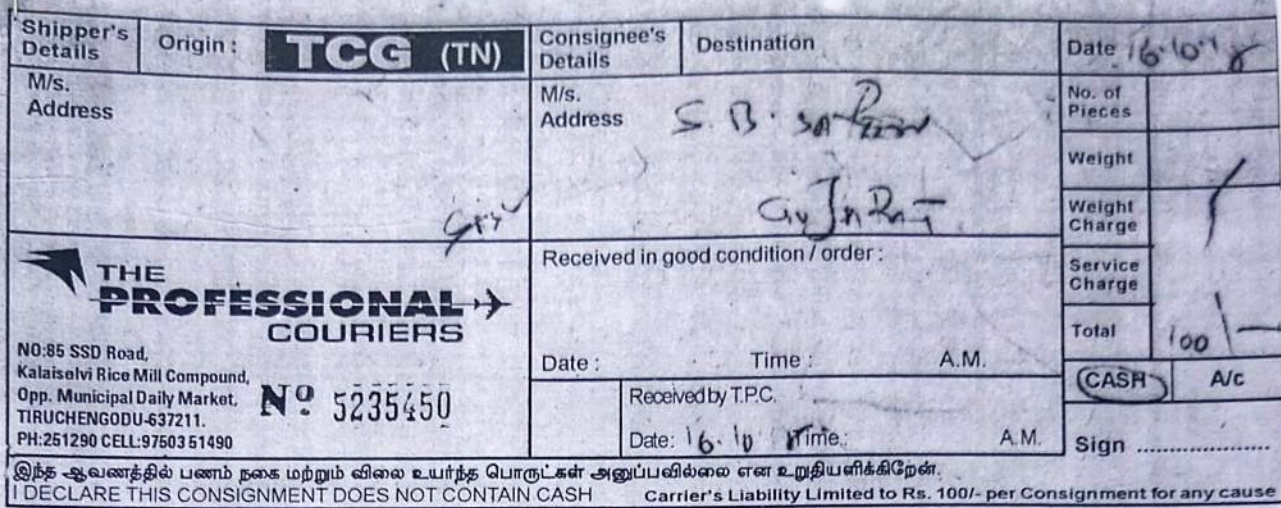 Shipper's Details Origin : TCG (TN) Consignee's Details Destination Date 16.10.18
M/s.
Address
M/s.
Address S. B.
GUJARAT
No. of Pieces
Weight
Weight Charge
Service Charge
Total 100/-
CASH A/c
Sign ....................
THE
PROFESSIONAL
COURIERS
NO:85 SSD Road,
Kalaiselvi Rice Mill Compound,
Opp. Municipal Daily Market,
TIRUCHENGODU-637211.
PH:251290 CELL:97503 51490
Nº 5235450
Received in good condition / order :
Date : Time : A.M.
Received by T.P.C.
Date: 16.10 Time.: A.M.
இந்த ஆவணத்தில் பணம் நகை மற்றும் விலை உயர்ந்த பொருட்கள் அனுப்பவில்லை என உறுதியளிக்கிறேன்.
I DECLARE THIS CONSIGNMENT DOES NOT CONTAIN CASH Carrier's Liability Limited to Rs. 100/- per Consignment for any cause